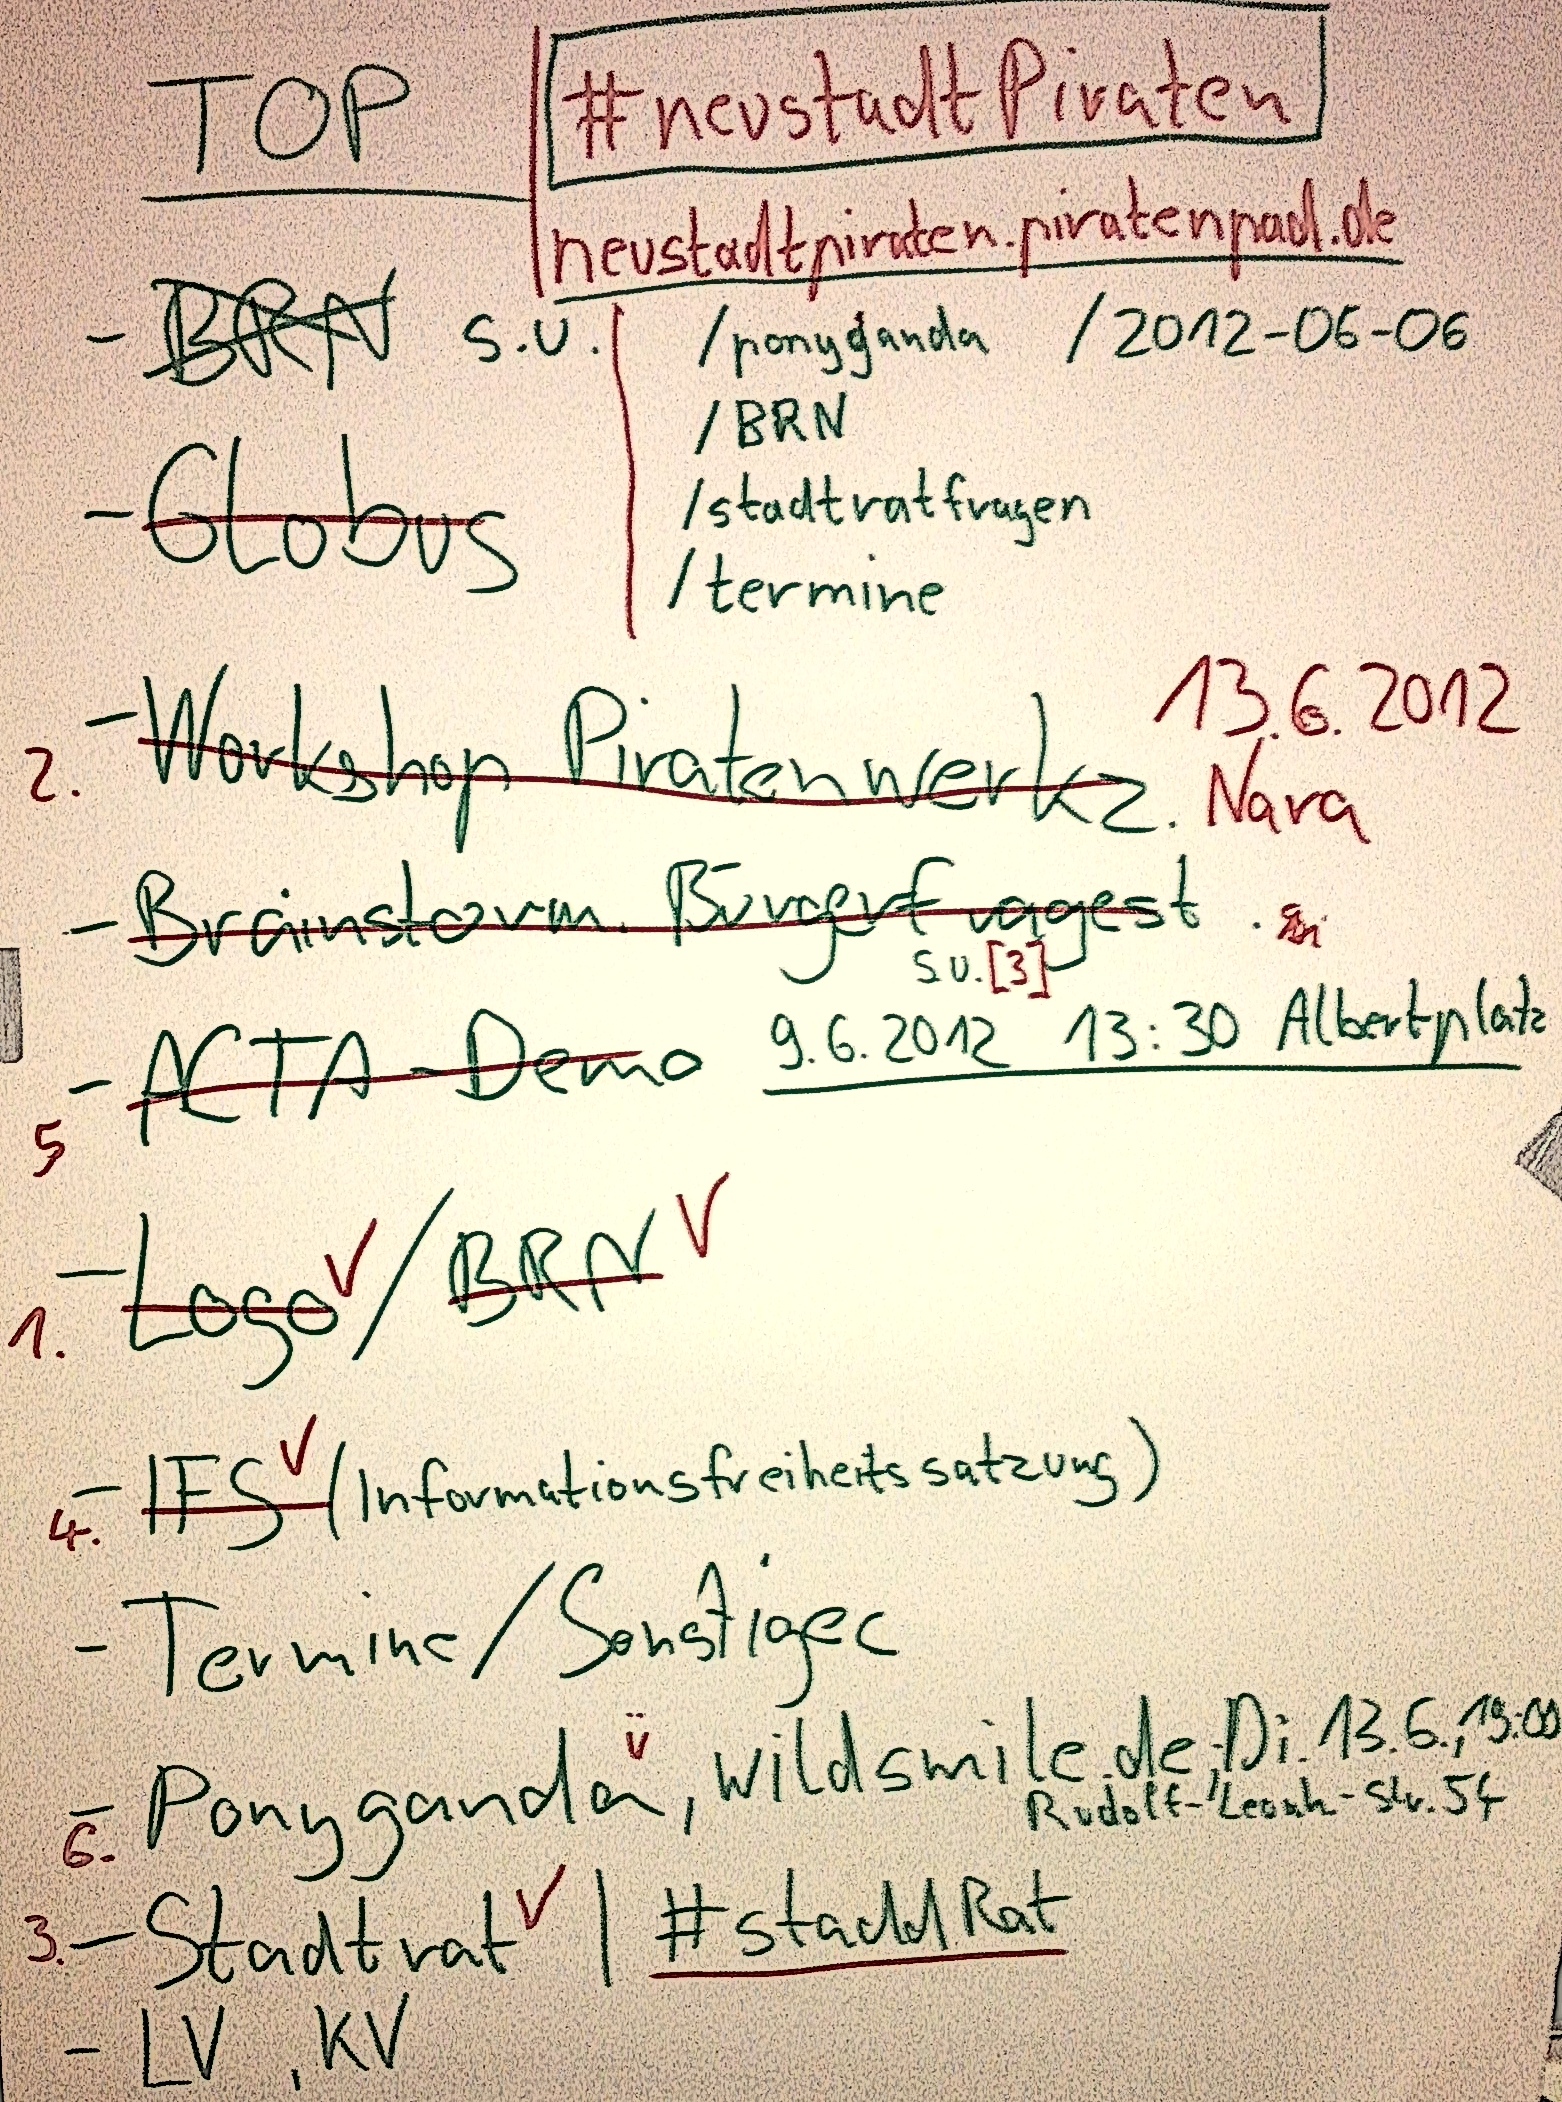 TOP
#neustadtPiraten
neustadtpiraten.piratenpad.de
- BRN s.u.
/ponyganda /2012-06-06
/BRN
- Globus
/stadtratfragen
/termine
2. - Workshop Piratenwerkz. 13.6.2012
Nara
- Brainstorm. Bürgerfragest.
s.u. [3]
5 - ACTA-Demo 9.6.2012 13:30 Albertplatz
1. - Logo √ / BRN √
4. - IFS √ (Informationsfreiheitssatzung)
- Termine/Sonstiges
6. - Ponyganda ü, wildsmile.de, Di. 13.6., 19:00
Rudolf-Leonh-Str. 54
3. - Stadtrat √ | #staddRat
- LV, KV